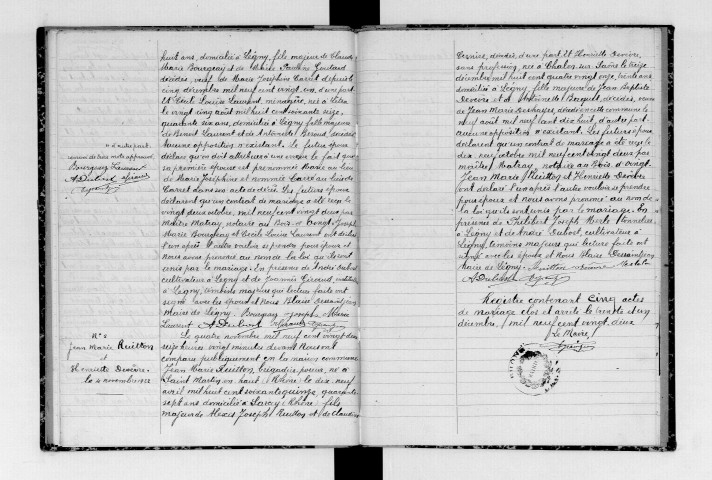 huit ans, domicilié à Légny, fils majeur de Claude
Marie Bourgeay et de Marie Pauline Coutaud
décédés, veuf de Marie Joséphine Carret depuis le
cinq décembre mil neuf cent vingt un, d'une part
et Cécile Louise Laurent, ménagère, née à Létra
le vingt cinq août mil huit cent soixante seize,
quarante six ans, domiciliée à Légny, fille majeure
de Benoit Laurent et de Antoinette décédés
Aucune opposition n'existant. Le futur époux
déclare qu'on doit attribuer à une erreur le fait que
sa première épouse est prénommée au lieu
de Marie Joséphine et nommée Carré au lieu de
Carret dans son acte de décès. Les futurs époux
déclarent qu'un contrat de mariage a été reçu le
vingt deux octobre, mil neuf cent vingt deux par
maître Matray, notaire au Bois d'Oingt. Joseph
Marie Bourgeay et Cécile Louise Laurent ont déclaré
l'un après l'autre vouloir se prendre pour époux et
nous avons prononcé au nom de la loi qu'ils sont
unis par le mariage. En présence de André Dubost
cultivateur à Légny et de Joannès Giraud,
à Légny, témoins majeurs qui lecture faite ont
signé avec les époux et Nous Blaise Dessaintjean
Maire de Légny. Bourgeay Joseph Marie
Laurent A Dubost
d'autre part
trois mots approuvés
Bourgeay Laurent
A Dubost
N° 5
Jean Marie Ruitton
et
Henriette Devèvre
le 4 novembre 1922
Le quatre novembre mil neuf cent vingt deux
seize heures vingt minutes devant Nous ont
comparu publiquement en la maison commune
Jean Marie Ruitton, brigadier poseur, né à
Saint Martin en haut (Rhône) le dix neuf
avril mil huit cent soixante quinze, quarante
sept ans domicilié à (Rhône) fils
majeur de Alexis Joseph Ruitton et de Claudine
décédés, d'une part Et Henriette Devèvre,
sans profession, née à Chalon sur Saône le treize
décembre mil huit cent quatre vingt onze, trente ans
domiciliée à Légny, fille majeure de Jean Baptiste
Devèvre et de Antoinette décédés, veuve
de Jean Marie Deshayes, décédé en cette commune le
neuf août mil neuf cent dix huit, d'autre part.
aucune opposition n'existant. Les futurs époux
déclarent qu'un contrat de mariage a été reçu le
dix neuf octobre mil neuf cent vingt deux par
maître Matray, notaire au Bois d'Oingt.
Jean Marie Ruitton et Henriette Devèvre
ont déclaré l'un après l'autre vouloir se prendre
pour époux et nous avons prononcé au nom de
la loi qu'ils sont unis par le mariage. En
présence de Philibert Joseph Merle tonnelier
à Légny et de André Dubost, cultivateur à
Légny, témoins majeurs qui lecture faite ont
signé avec les époux et Nous Blaise Dessaintjean
Maire de Légny. Ruitton
A Dubost
Registre contenant cinq actes
de mariage clos et arrêté le trente et un
décembre mil neuf cent vingt deux
Le Maire